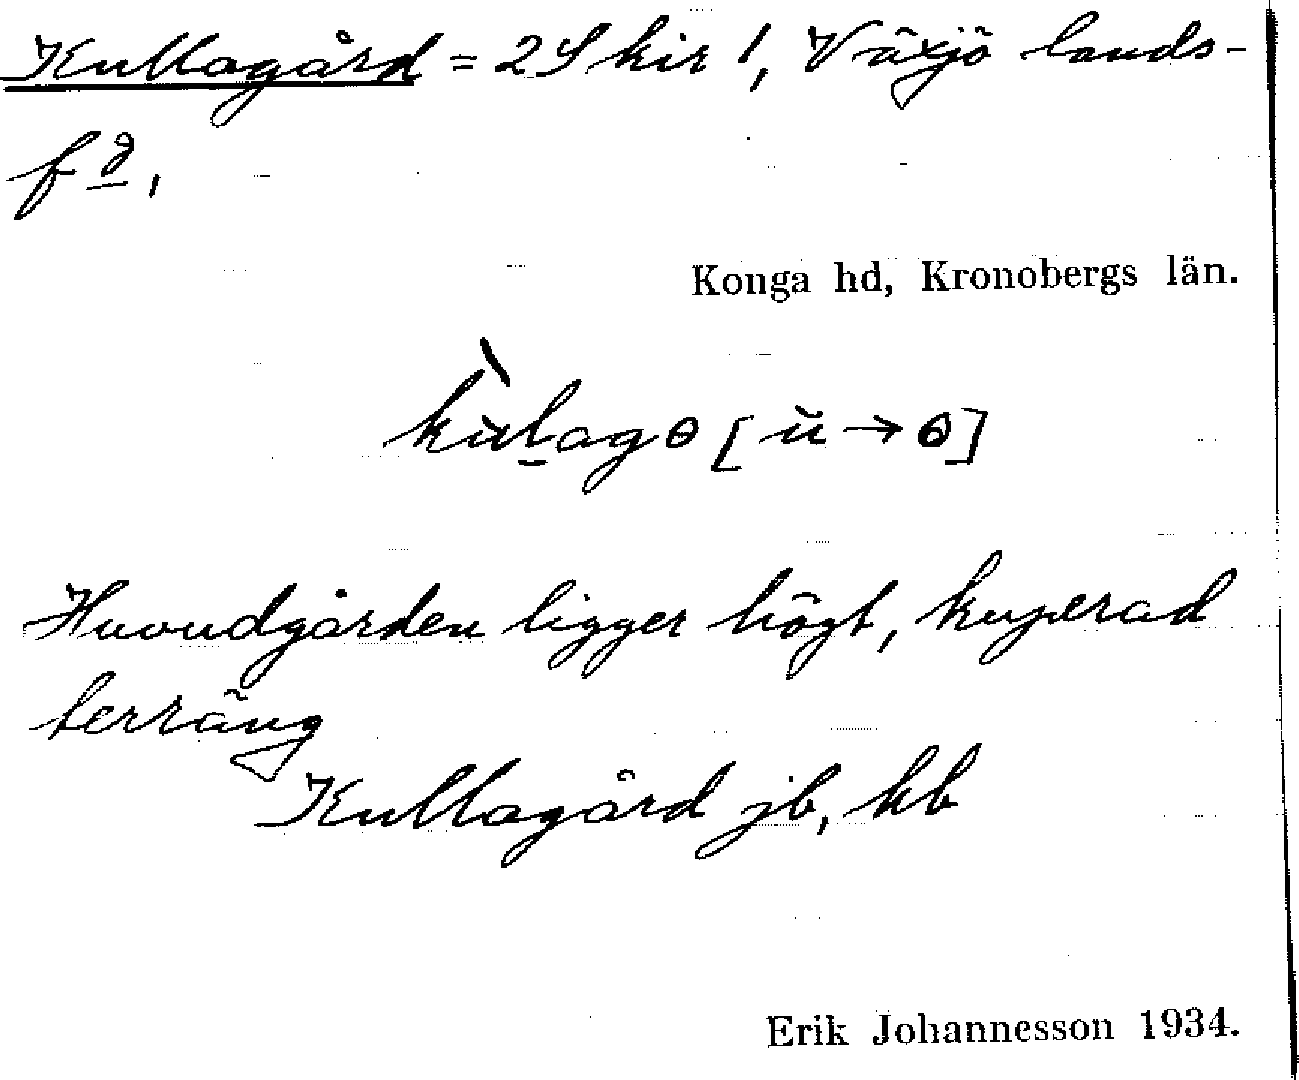 Kullagård = 2 Skir 1, Växjö lands-
fg,
Konga hd, Kronobergs län.
kùlagɵ [ŭ → ɵ]
Huvudgården ligger högt, kuperad
terräng
Kullagård jb, kb
Erik Johannesson 1934.